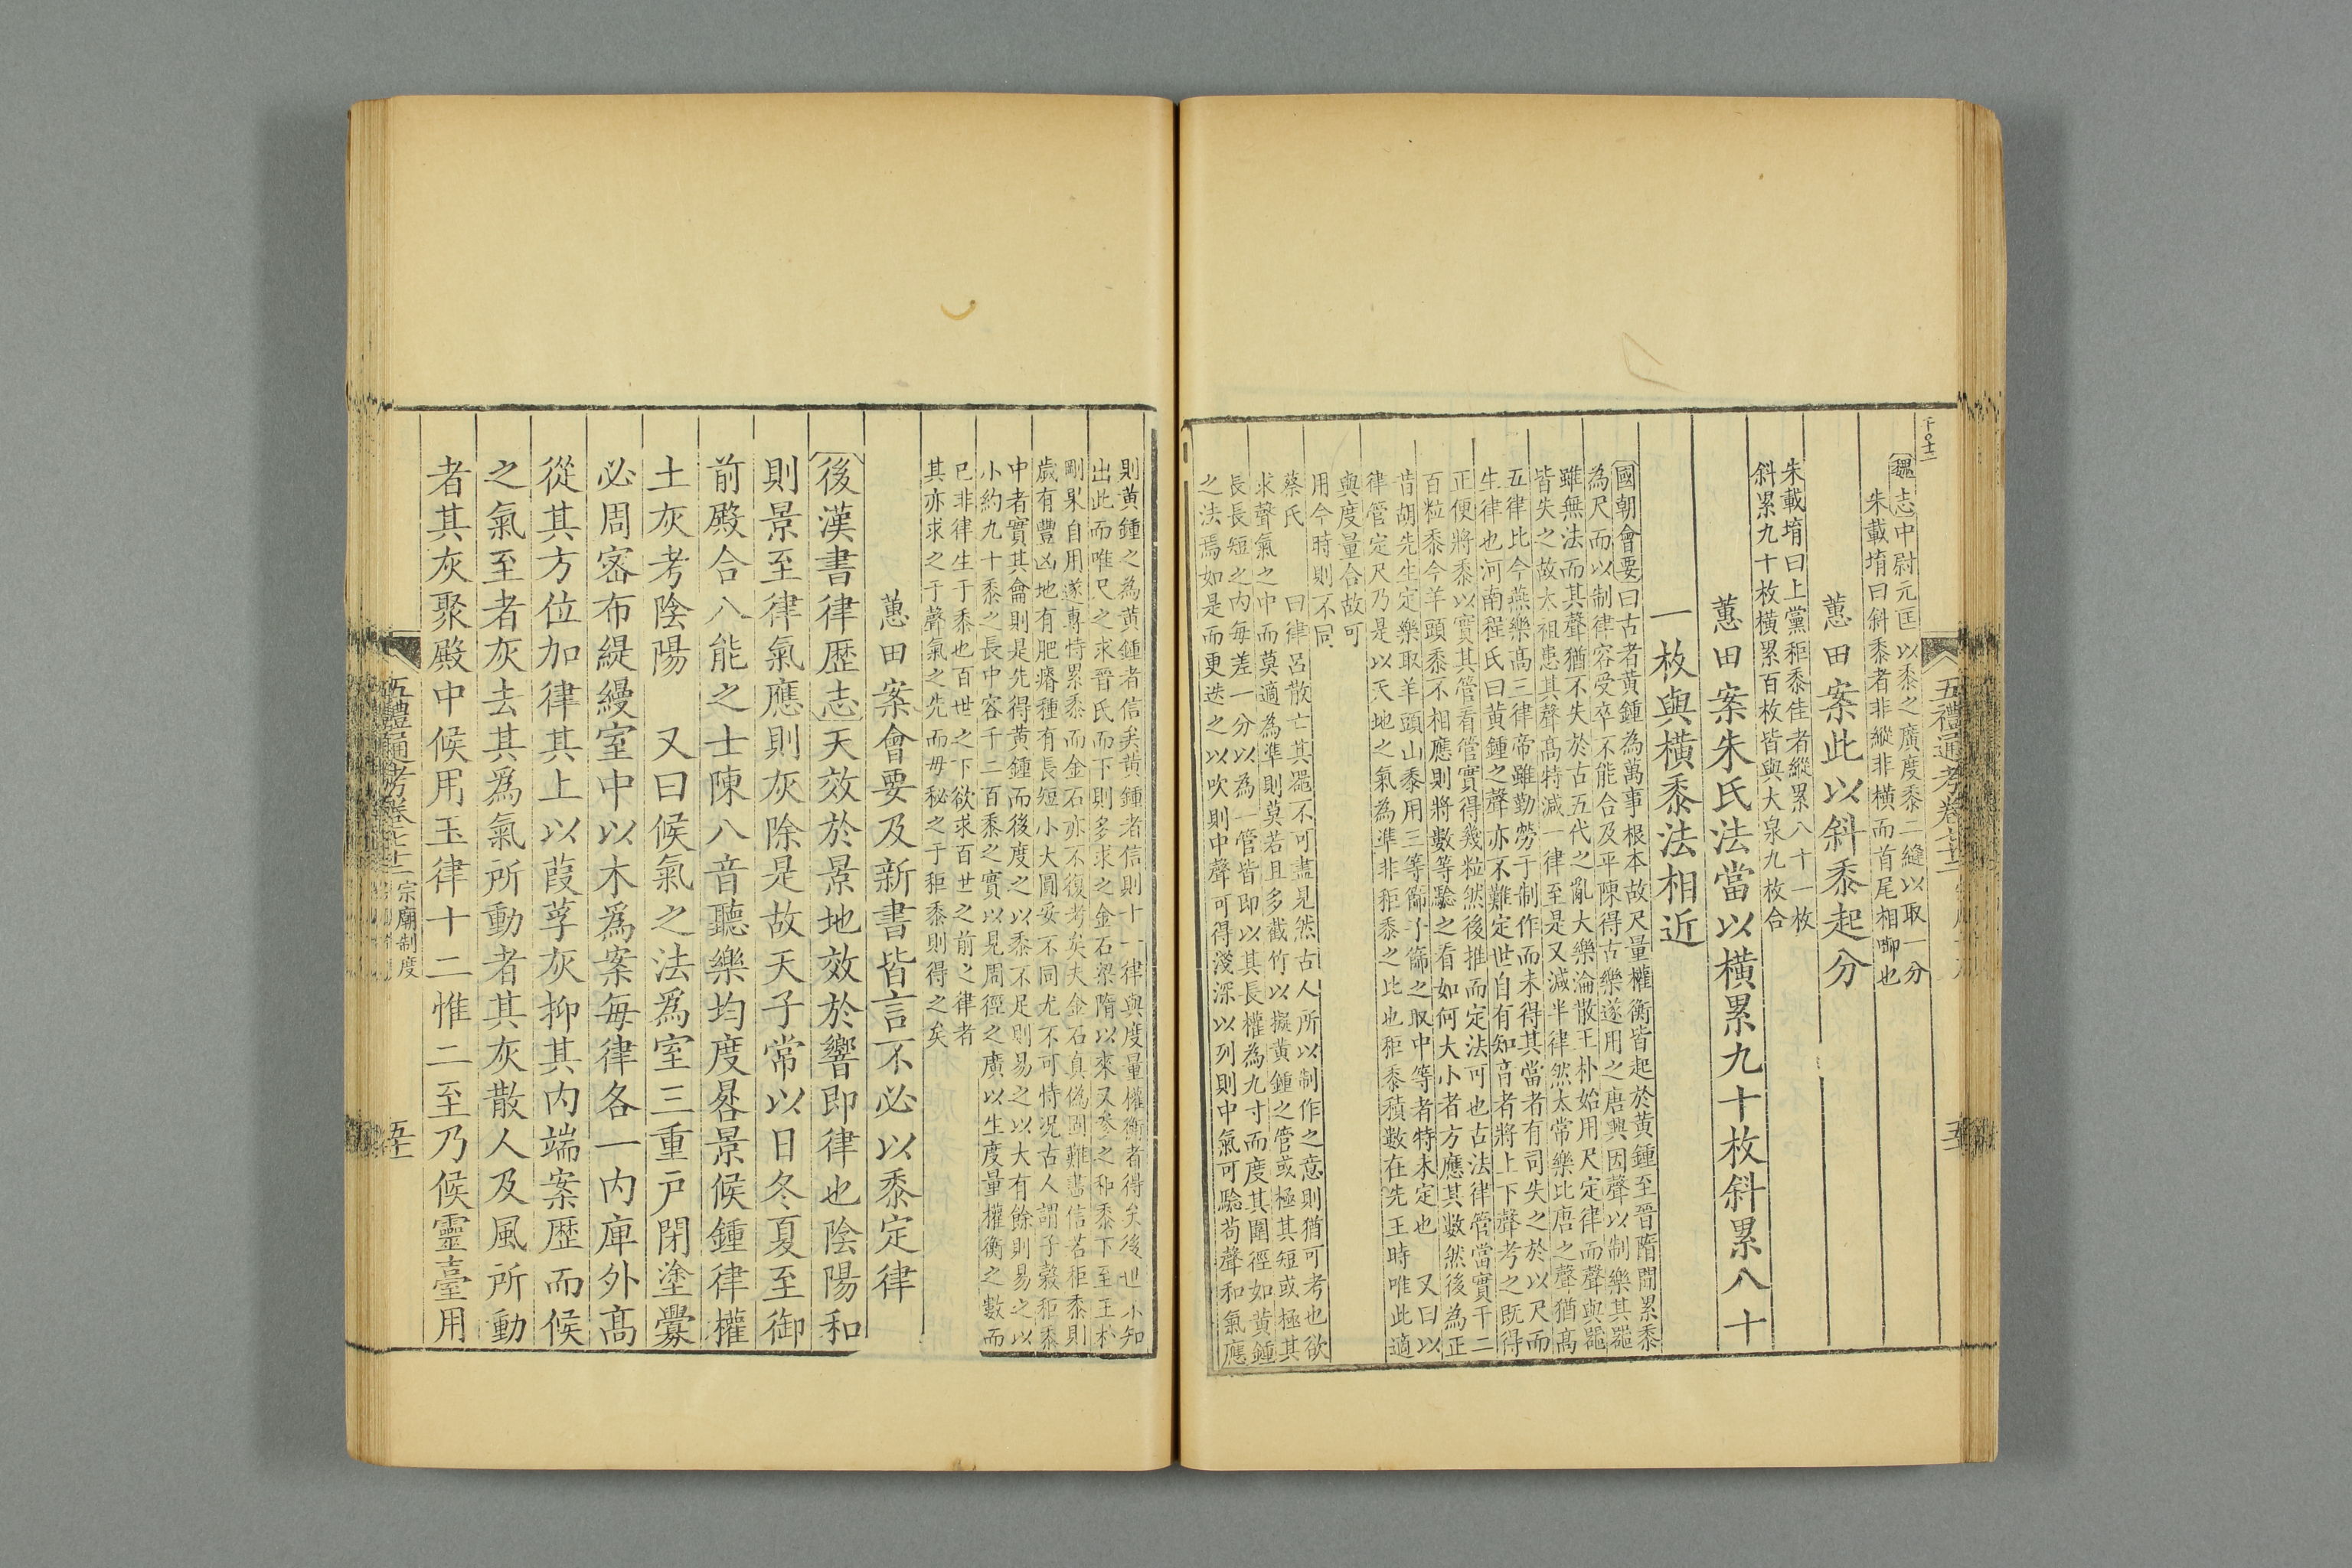 魏志中尉元匡以黍之廣度黍二縫以取一分
朱載堉曰斜黍者非縱非橫而首尾相啣也
蕙田案此以斜黍起分
朱載堉曰上黨秬黍佳者縱累八十一枚
斜累九十枚橫累百枚皆與大泉九枚合
蕙田案朱氏法當以橫累九十枚斜累八十
一枚與橫黍法相近
國朝會要曰古者黃鍾為萬事根本故尺量權衡皆起於黃鍾至晉隋間累黍
為尺而以制律容受卒不能合及平陳得古樂遂用之唐興因聲以制樂其器
雖無法而其聲猶不失於古五代之亂大樂淪散王朴始用尺定律而聲與器
皆失之故太祖患其聲高特減一律至是又減半律然太常樂比唐之聲猶高
五律比今燕樂高三律帝雖勤勞于制作而未得其當者有司失之於以尺而
生律也河南程氏曰黃鍾之聲亦不難定世自有知音者將上下聲考之既得
正便將黍以實其管看管實得幾粒然後推而定法可也古法律管當實千二
百粒黍今羊頭黍不相應則將數等驗之看如何大小者方應其數然後為正
昔胡先生定樂取羊頭山黍用三等篩子篩之取中等者特未定也　又曰以
律管定尺乃是以天地之氣為準非秬黍之比也秬黍積數在先王時唯此適
與度量合故可
用今時則不同
蔡氏　曰律呂散亡其器不可盡見然古人所以制作之意則猶可考也欲
求聲氣之中而莫適為準則莫若且多截竹以擬黃鍾之管或極其短或極其
長長短之內每差一分以為一管皆即以其長權為九寸而度其圍徑如黃鍾
之法焉如是而更迭之以吹則中聲可得淺深以列則中氣可驗苟聲和氣應
五禮通考卷七十二
則黃鍾之為黃鍾者信矣黃鍾者信則十一律與度量權衡者得矣後世不知
出此而唯尺之求晉氏而下則多求之金石梁隋以來又參之秬黍下至王朴
剛果自用遂專恃累黍而金石亦不復考矣夫金石真偽固難盡信若秬黍則
歲有豐凶地有肥瘠種有長短小大圓妥不同尤不可恃況古人謂子穀秬黍
中者實其龠則是先得黃鍾而後度之以黍不足則易之以大有餘則易之以
小約九十黍之長中容千二百黍之實以見周徑之廣以生度量權衡之數而
已非律生于黍也百世之下欲求百世之前之律者
其亦求之于聲氣之先而毋秘之于秬黍則得之矣
蕙田案會要及新書皆言不必以黍定律
後漢書律歷志天效於景地效於響即律也陰陽和
則景至律氣應則灰除是故天子常以日冬夏至御
前殿合八能之士陳八音聽樂均度晷景候鍾律權
土灰考陰陽　又曰候氣之法爲室三重戶閉塗釁
必周密布緹縵室中以木爲案每律各一內庳外高
從其方位加律其上以葭莩灰抑其內端案歷而候
之氣至者灰去其爲氣所動者其灰散人及風所動
者其灰聚殿中候用玉律十二惟二至乃候靈臺用
五禮通考卷七十二 宗廟制度